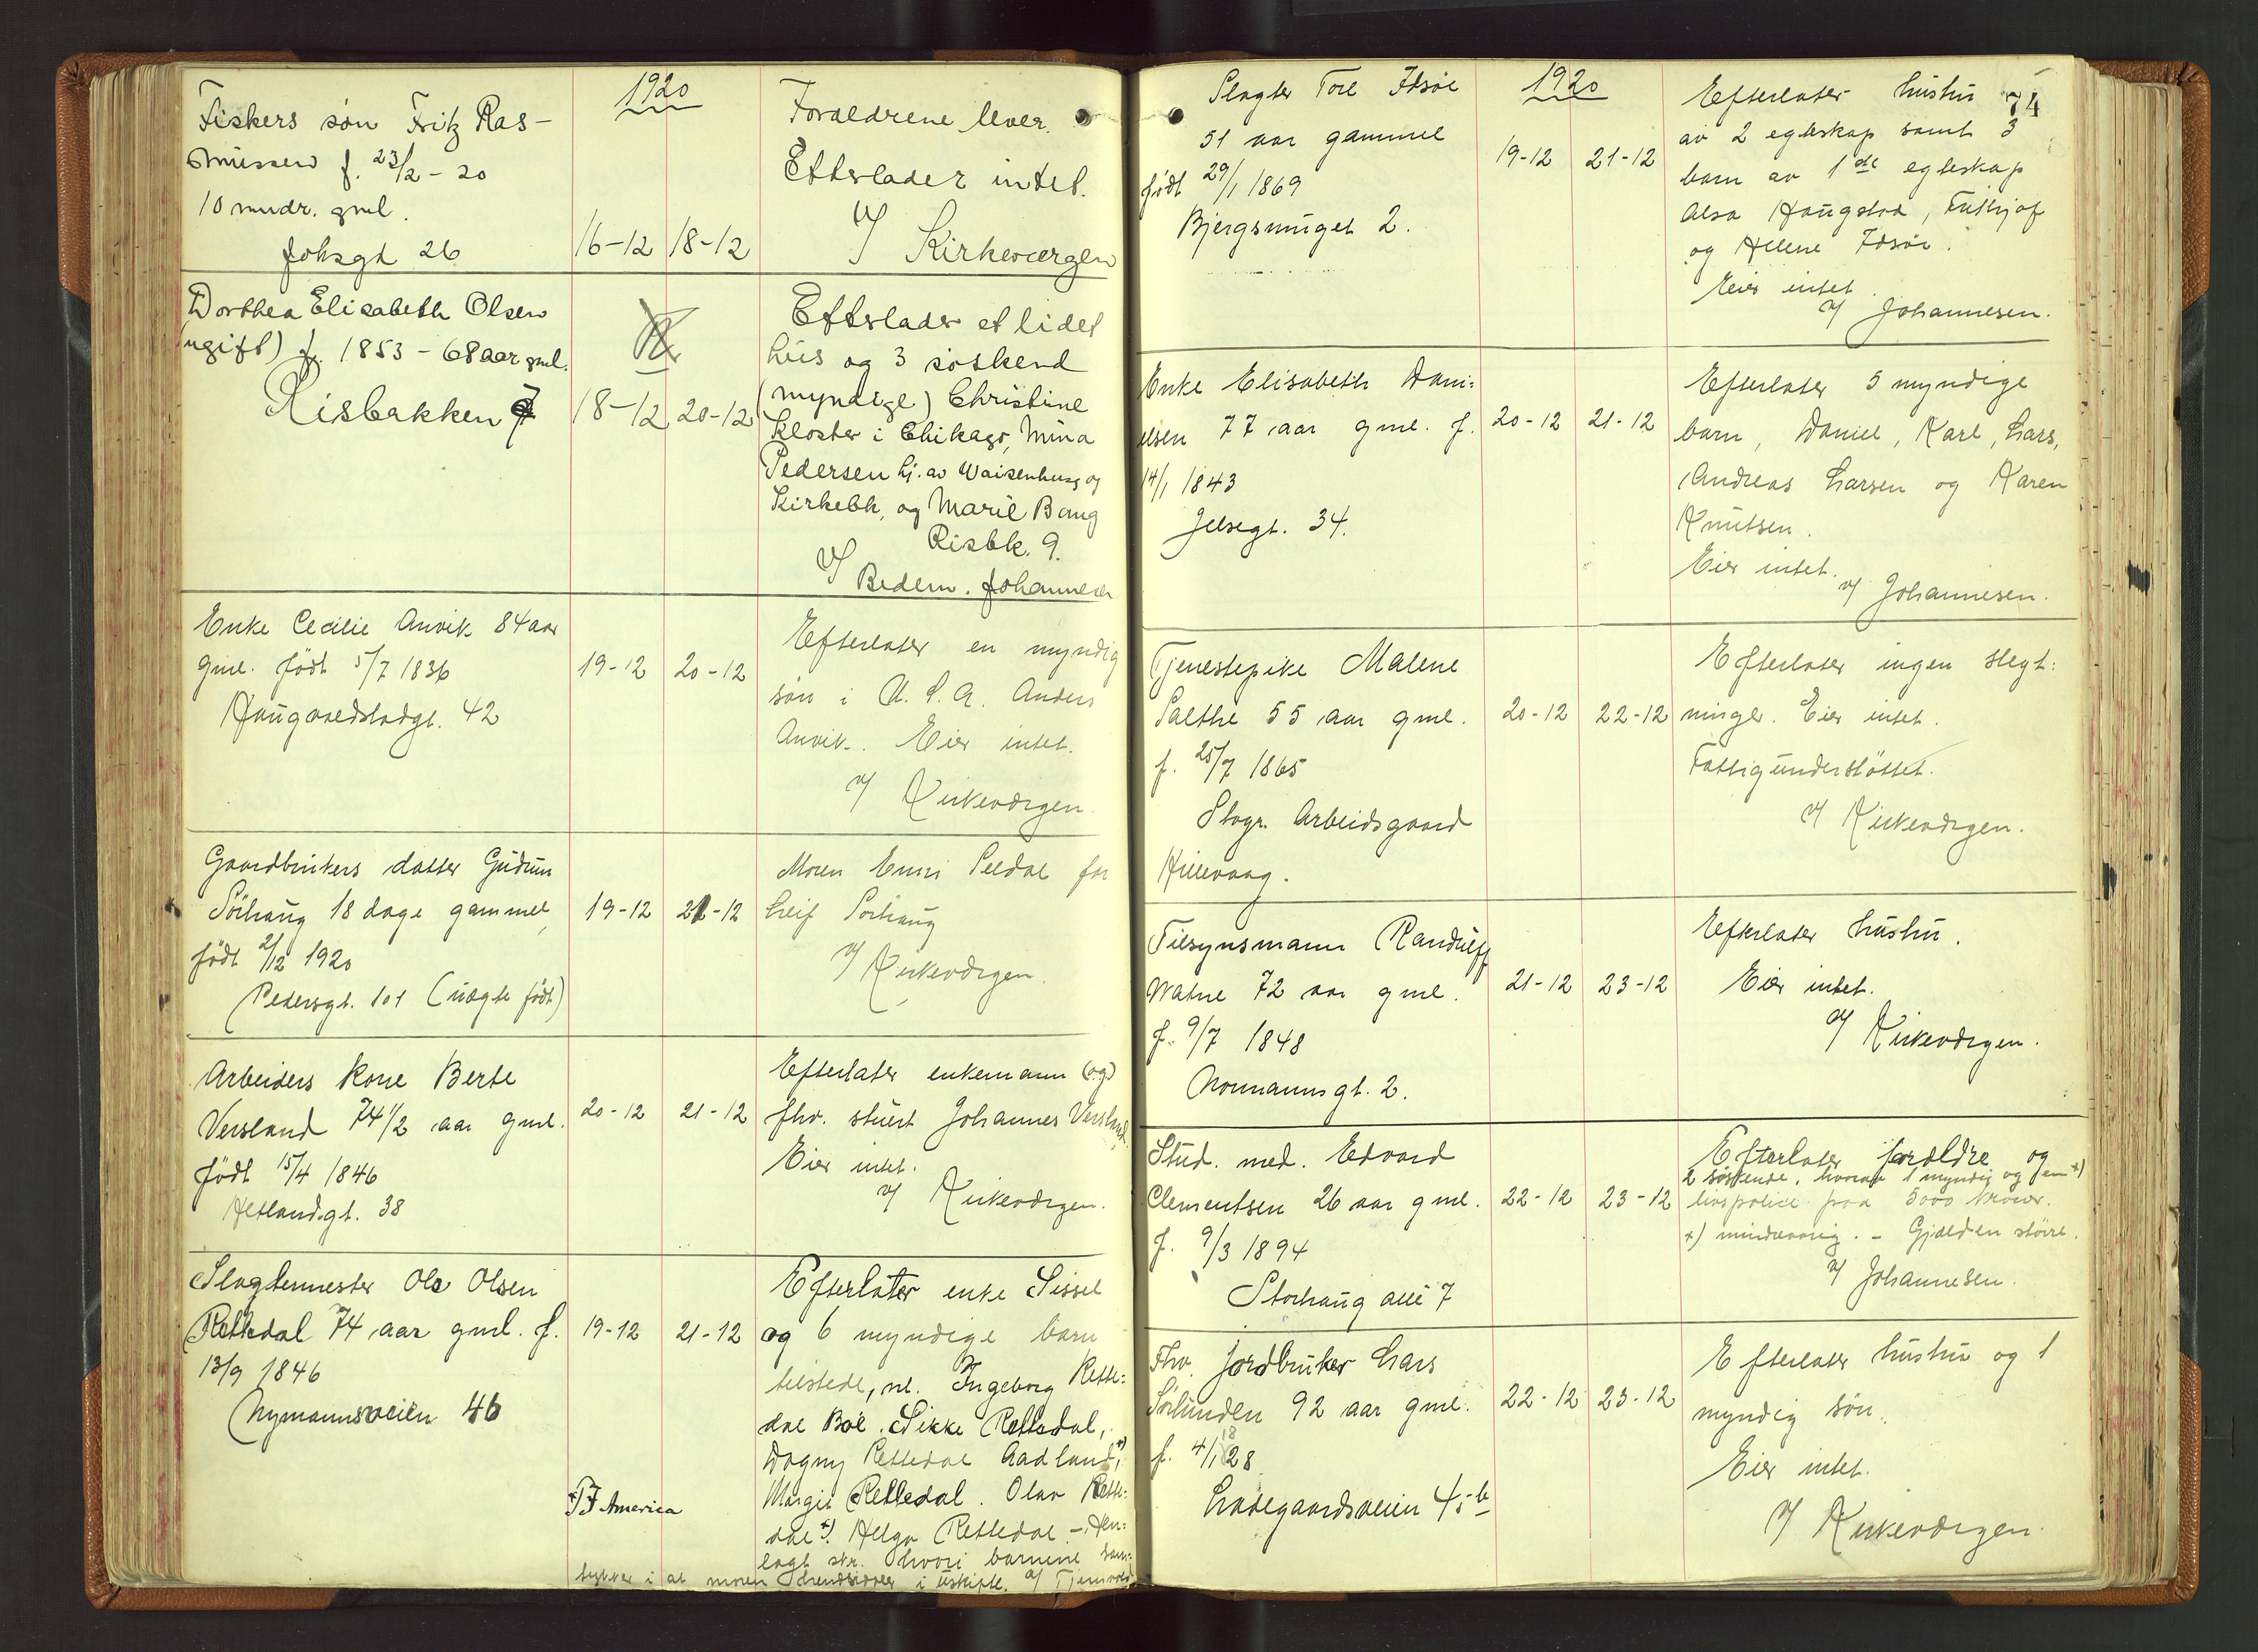 1920
Fiskers søn Fritz Ras-
mussen f. 23/2 - 20
10 mndr. gml.
Joksgt 26
16-12 18-12
Foraeldrene lever.
Efterlader intet.
V/ Kirkevaergen
Dorthea Elisabeth Olsen
(ugift) f. 1853 - 68 aar gml.
Risbakken 9
18-12 20-12
Efterlader et lidet
hus og 3 søskend
(myndige) Christine
Kloster i Chikago, Mina
Pedersen hj. av Waisenhusg og
Kirkebk, og Marie Bang
Risbk. 9.
V/ Bedem. Johannesen
Enke Cecilie Anvik 84 aar
gml. født 5/7 1836
Haugvaldstadgt. 42
19-12 20-12
Efterlater en myndig
søn i U. S. A. Anders
Anvik. Eier intet.
V/ Kirkeværgen
Gaardbrukers datter Gudrun
Sörhaug 18 dage gammel,
født 2/12 1920
Pedersgt. 101 (uægte født)
19-12 21-12
Moren Enni Seldal far
Leif Sörhaug
V/ Kirkeværgen.
Arbeiders kone Berte
Versland 74 1/2 aar gml.
født 15/4 1846
Hetlandsgt. 38
20-12 21-12
Efterlater enkemann (og)
fhv. stuert Johannes Versland.
Eier intet.
V/ Kirkeværgen.
Slagtermester Ole Olsen
Rettedal 74 aar gml. f.
13/9 1846
Nymannsveien 46
19-12 21-12
Efterlater enke Sissel
og 6 myndige barn
tilstede, nl. Ingeborg Rette:
dal Bøe. Sikke Rettedal,
Dagny Rettedal Aadland,+)
Margit Rettedal. Olav Rette:
dal+). Helga Rettedal - Hen:
+) I America
lagt skr. hvori barnene sam:
tykker i at moren hensidder i uskifte. V/ Tjensvold
74
1920
Slagter Tore Idsøe
51 aar gammel
født 29/1 1869
Bjergsmuget 2.
19-12 21-12
Efterlater hustru
av 2 egteskap samt 3
barn av 1ste egteskap
Alsa Haugstad, Fritjof
og Helene Idsøe.
Eier intet.
V/ Johannesen.
Enke Elisabeth Dani:
elsen 77 aar gml. f.
14/1 1843
Jelsegt. 34.
20-12 21-12
Efterlater 5 myndige
barn, Daniel, Karl, Lars,
Andreas Larsen og Karen
Knutsen.
Eier intet.
V/ Johannesen.
Tjenestepike Malene
Salthe 55 aar gml.
f. 25/7 1865
Stvgr. Arbeidsgaard
Hillevaag.
20-12 22-12
Efterlater ingen slegt:
ninger. Eier intet.
Fattigunderstöttet.
V/ Kirkeværgen.
Tilsynsmann Randulff
Watne 72 aar gml.
f. 9/7 1848
Normannsgt. 2.
21-12 23-12
Efterlater hustru.
Eier intet.
V/ Kirkeværgen.
Stud. med. Edvard
Clementsen 26 aar gml.
f. 9/3 1894
Storhaug allé 7
22-12 23-12
Efterlater forældre og
2 søskende, hvorav 1 myndig og en +)
livspolice paa 5000 kroner.
+) mindreaarig. - Gjælden større.
V/ Johannesen.
Fhv. jordbruker Lars
Sörlunden 92 aar gml.
f. 4/1 1828
Ladegaardsveien 45 b
22-12 23-12
Efterlater hustru og 1
myndig søn.
Eier intet.
V/ Kirkeværgen.